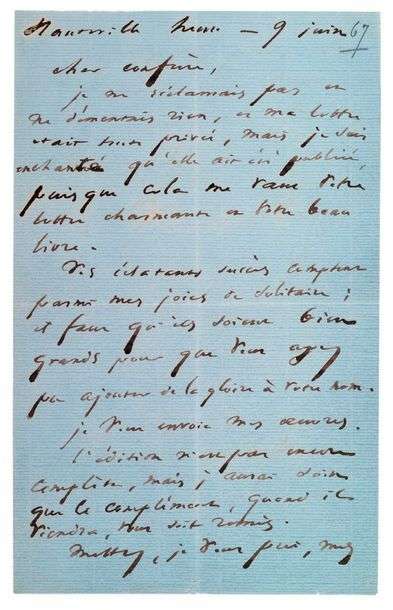 Hauteville house — 9 juin 67
cher confrère,
je ne réclamais pas et
ne démentais rien, et ma lettre
était privée, mais je suis
enchanté qu'elle ait été publiée,
puisque cela me vaut votre
lettre charmante et votre beau
livre.
Vos éclatants succès comptent
parmi mes joies de solitaire ;
il faut qu'ils soient bien
grands pour que vous ayez
pu ajouter de la gloire à votre nom.
je vous envoie mes œuvres.
l'édition n'est pas encore
complète, mais j'aurai soin
que le complément, quand il
viendra, vous soit remis.
Mettez, je vous prie, mes